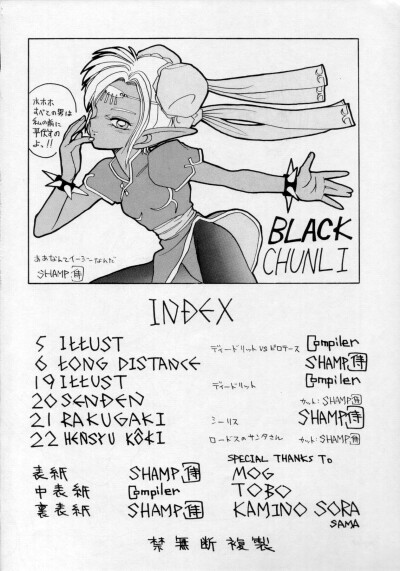 ホホホ
すべての男は
私の前に
平伏すの
よ。!!
BLACK
CHUNLI
ああなんてイージーなんだ
SHAMP侍
INDEX
5 ILLUST ディードリット VS ピロテース Compiler
6 LONG DISTANCE SHAMP侍
19 ILLUST ディードリット Compiler
20 SENDEN カット:SHAMP侍
21 RAKUGAKI シーリス SHAMP侍
22 HENSYU KÔKI ロードスのサンタさん カット:SHAMP侍
表紙 SHAMP侍
中表紙 Compiler
裏表紙 SHAMP侍
SPECIAL THANKS TO
MOG
TOBO
KAMINO SORA
SAMA
禁無断複製